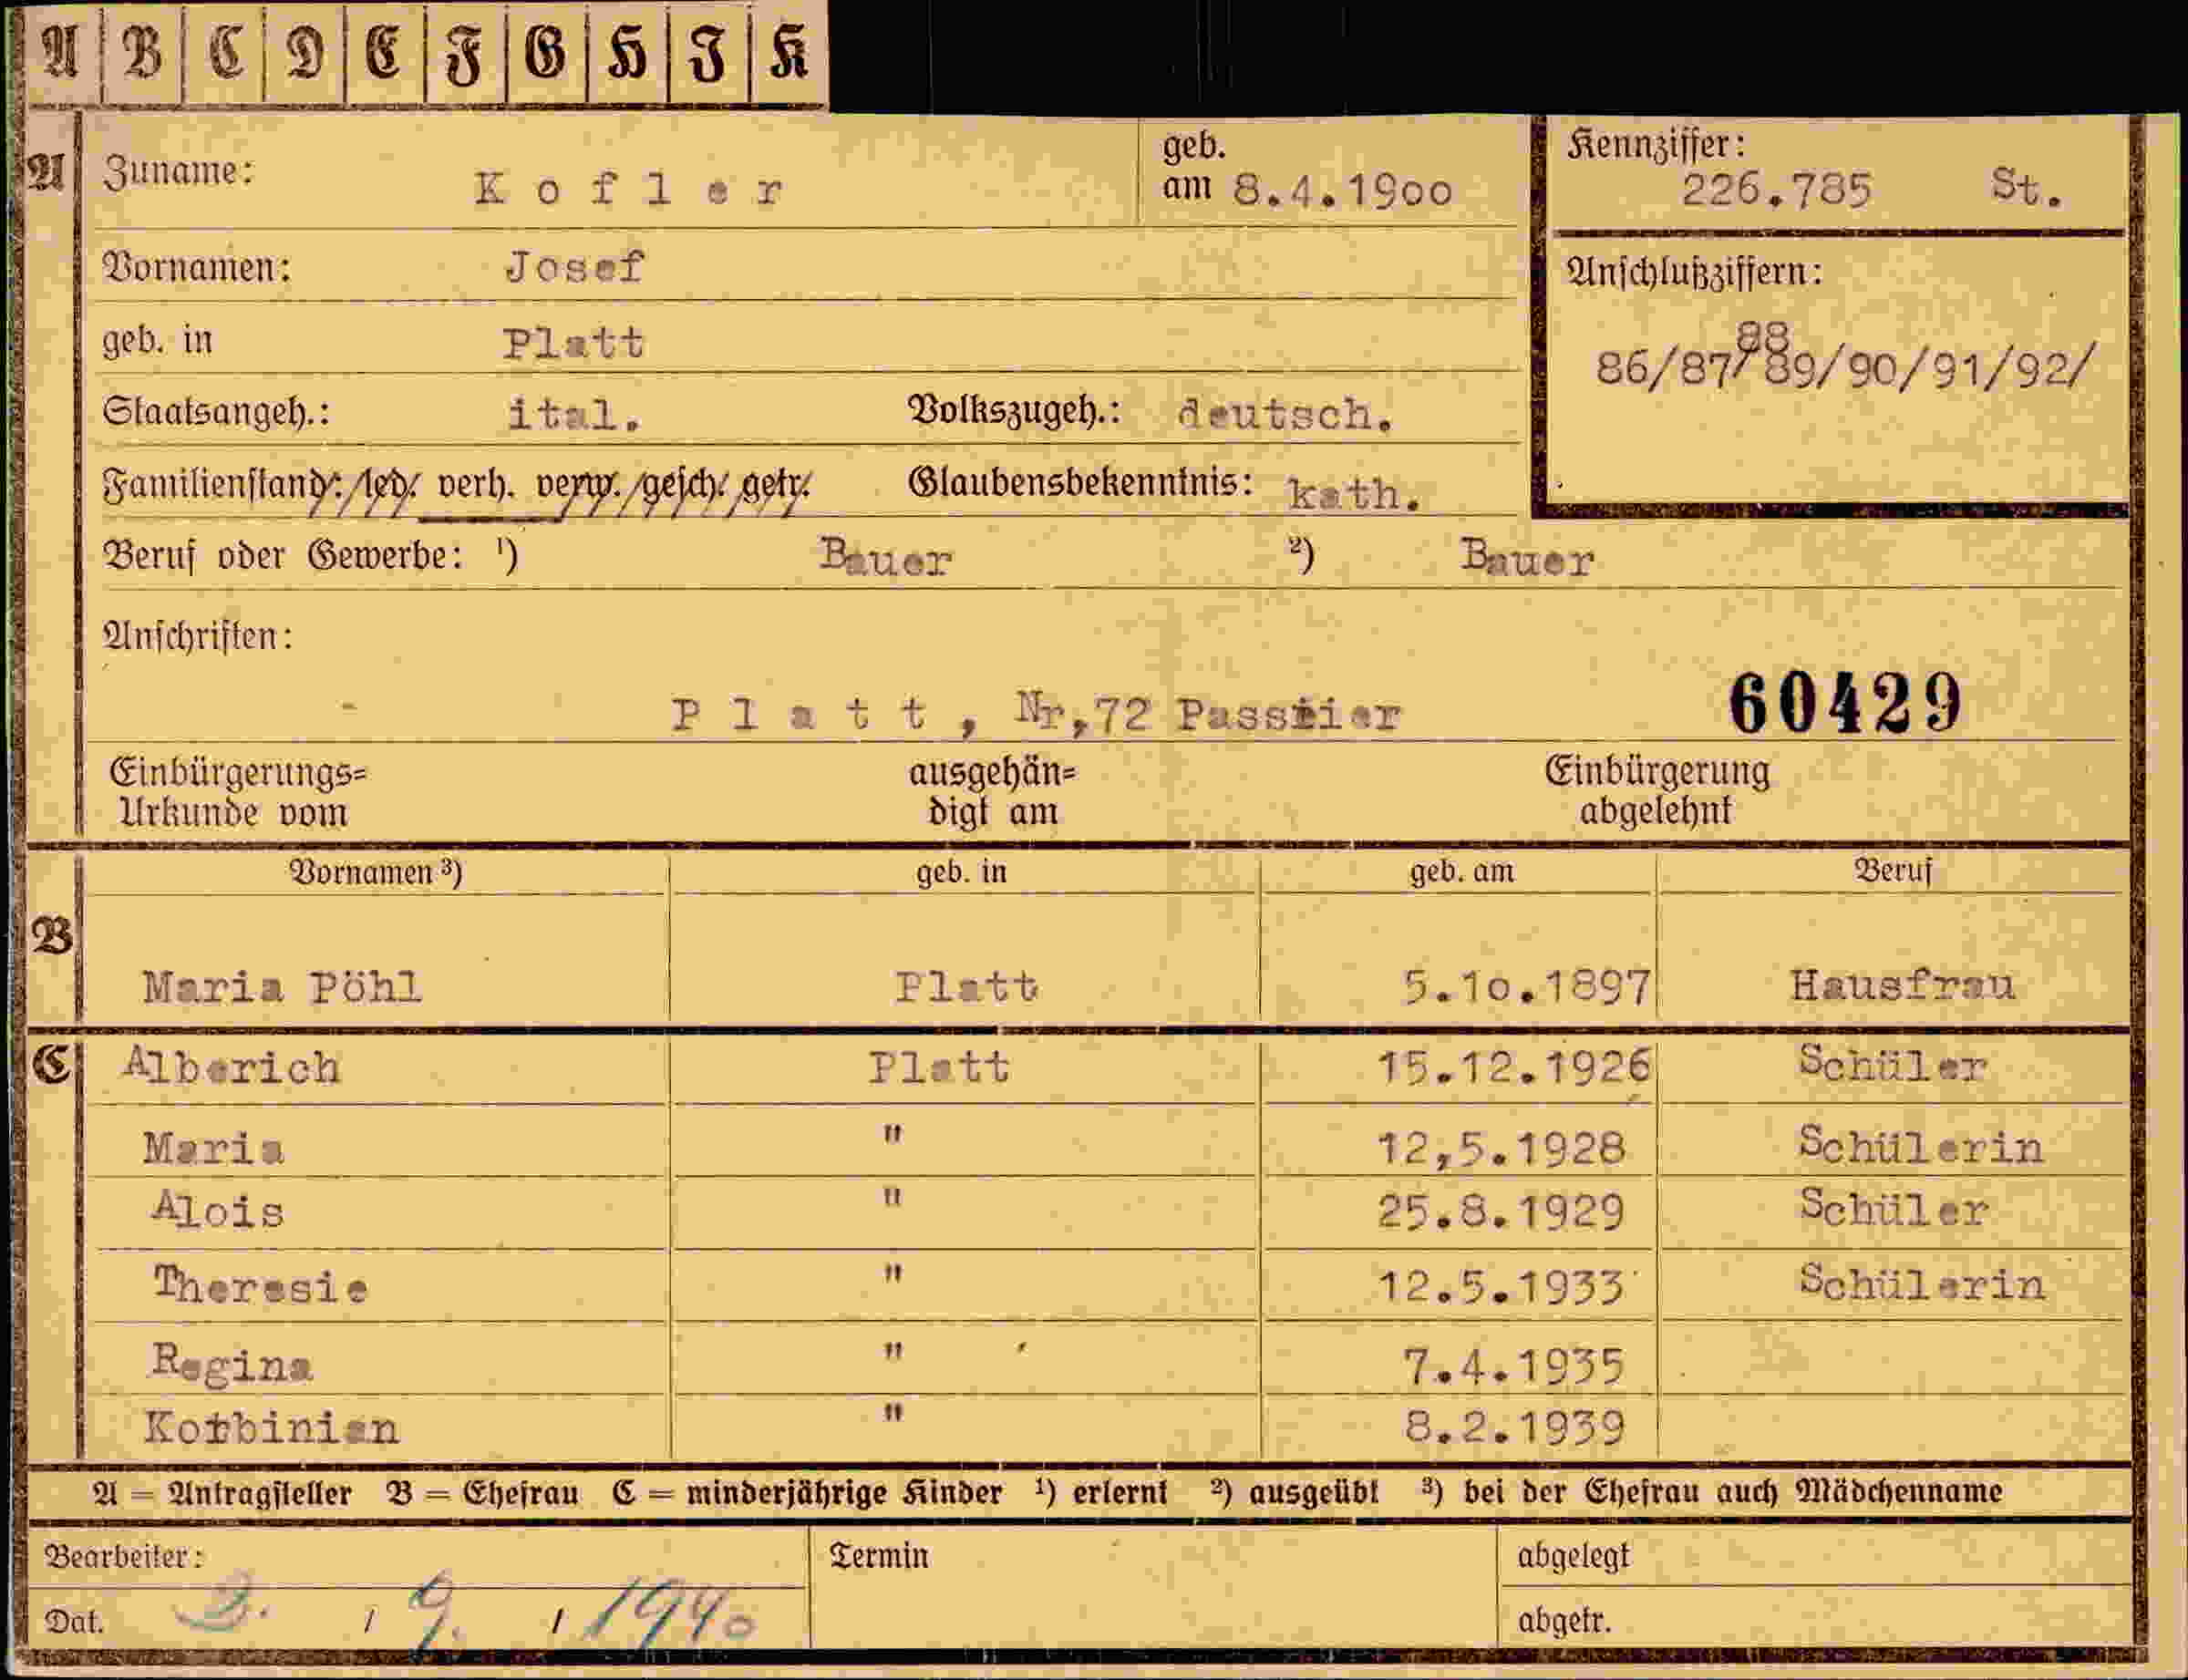 A B C D E F G H I K
A Zuname: Kofler geb. am 8.4.1900 Kennziffer: 226.785 St.
Vornamen: Josef
Anschlußziffern:
geb. in Platt
88
86/87/89/90/91/92/
Staatsangeh.: ital. Volkszugeh.: deutsch.
Familienstand: led. verh. verw. gesch. getr. Glaubensbekenntnis: kath.
Beruf oder Gewerbe: ¹) Bauer ²) Bauer
Anschriften:
Platt, Nr,72 Passeier
60429
Einbürgerungs= Urkunde vom ausgehän= digt am Einbürgerung abgelehnt
Vornamen ³) geb. in geb. am Beruf
B Maria Pöhl Platt 5.10.1897 Hausfrau
C Alberich Platt 15.12.1926 Schüler
Maria " 12,5.1928 Schülerin
Alois " 25.8.1929 Schüler
Theresie " 12.5.1933 Schülerin
Regina " 7.4.1935
Korbinian " 8.2.1939
A = Antragsteller B = Ehefrau C = minderjährige Kinder ¹) erlernt ²) ausgeübt ³) bei der Ehefrau auch Mädchenname
Bearbeiter: Termin abgelegt
Dat. 3. / 9. / 1940 abgetr.